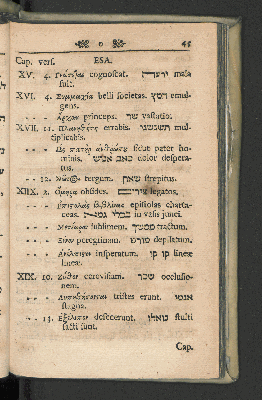 45
Cap. vers. ESA.
XV. 4. cognoscat. mala
fuit.
XVI. 4. Συμμαχία belli societas. המץ emul-
gens.
,, ,, Ἄρχων princeps. שר vastatio.
XVII. 11. errabis.
tiplicabis.
,, ,, Ὡς πατὴρ ἀνθρώπου sicut pater ho-
minis. כאב אנוש dolor despera-
tus.
,, 12. tergum. שאון strepitus.
XIIX. 2. Ὅμηρα obsides. legatos,
,, ,, Ἐπιστολὰς epistolas charta-
ceas. בכלי גמא in vasis junci.
,, ,, Μετέωρον sublimem. ממשך tractum
,, ,, Ξένον peregrinum. מורט depilatum.
,, ,, insperatum. קו קו lineæ
lineæ.
XIX. 10. Ζῦθον cerevisiam. שכר occlusio-
nem.
,, ,, Λυπηθήσονται tristes erunt. אגמי
stagna.
,, 13. Ἐξέλιπον defecerunt. נואלו stulti
facti sunt.
Cap.